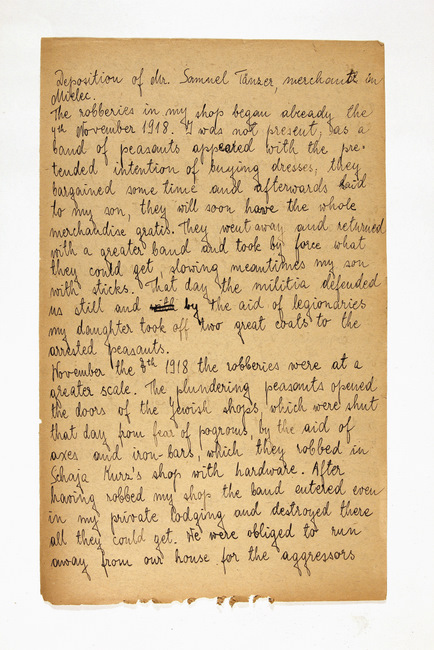 Deposition of Mr. Samuel Tänzer, merchant in
Mielec.
The robberies in my shop began already the
4th November 1918. I was not present, as a
band of peasants appeared with the pre-
tended intention of buying dresses; they
bargained some time and afterwards said
to my son, they will soon have the whole
merchandise gratis. They went away and returned
with a greater band and took by force what
they could get, slowing meantimes my son
with sticks. That day the militia defended
us still and by the aid of legiondries
my daughter took off two great coats to the
arrested peasants.
November the 8th 1918 the robberies were at a
greater scale. The plundering peasants opened
the doors of the Jewish shops, which were shut
that day from fear of pogroms, by the aid of
axes and iron-bars, which they robbed in
Schaja Kurz's shop with hardware. After
having robbed my shop the band entered even
in my private lodging and destroyed there
all they could get. We were obliged to run
away from our house for the aggressors